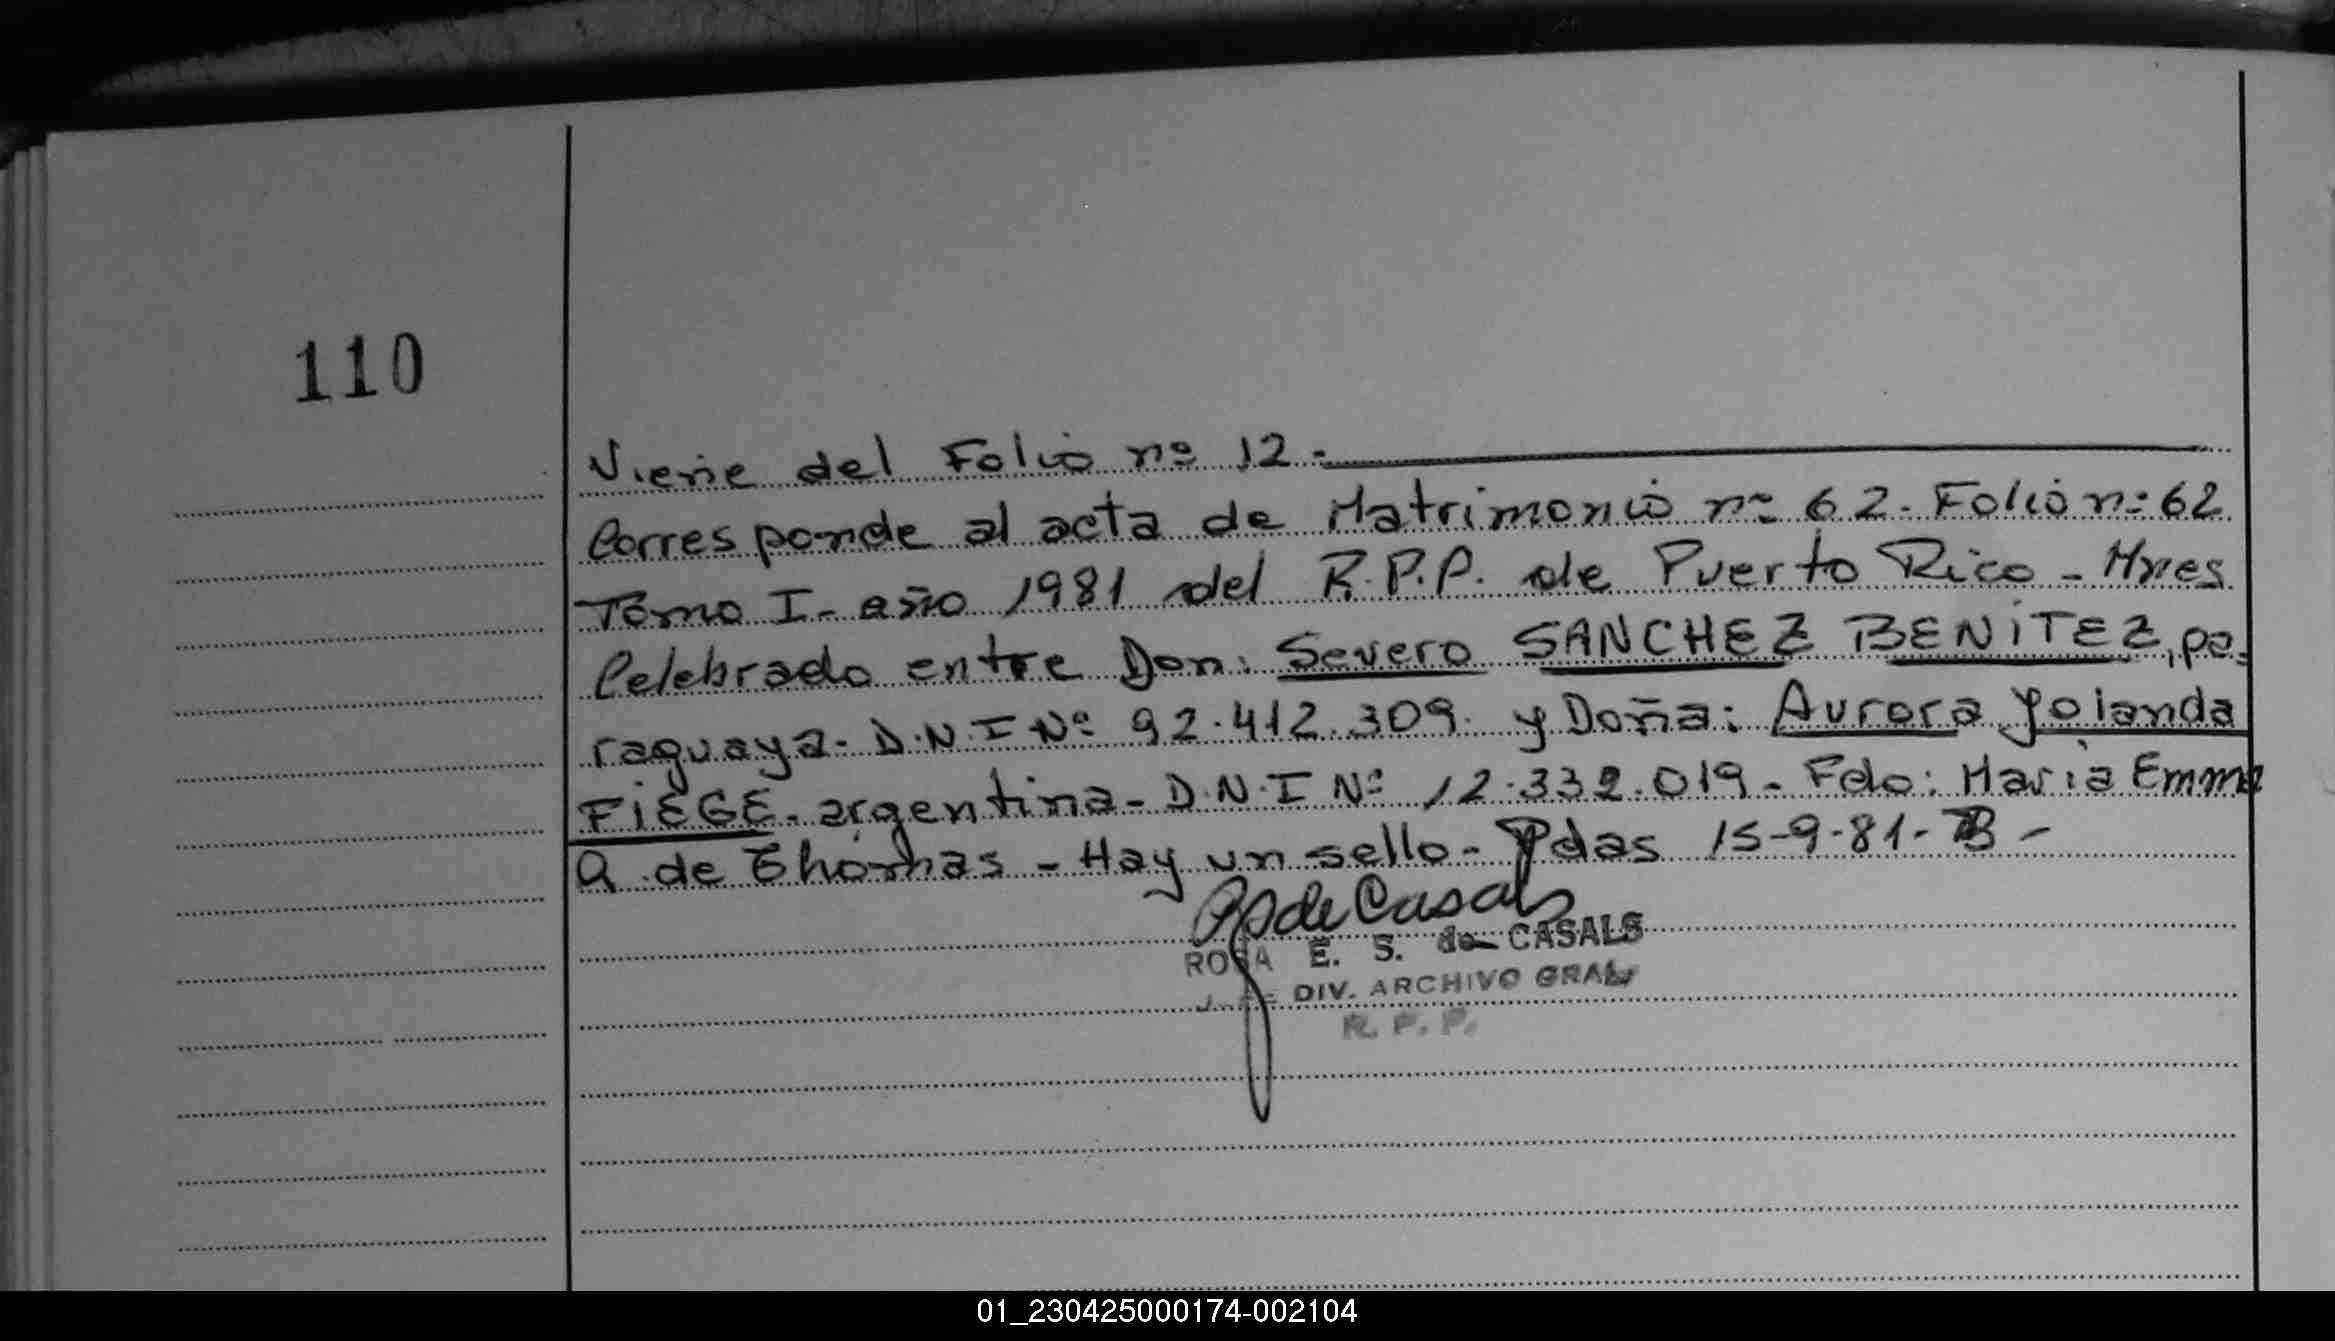 110
Viene del Folio nº 12.
Corresponde al acta de Matrimonio nº 62. Folio nº 62
Tomo I- año 1981 del R.P.P. de Puerto Rico - Mnes
Celebrado entre Don: Severo SANCHEZ BENITEZ, pa-
raguaya. D.N.I Nº 92.412.309. y Doña: Aurora Yolanda
FIEGE. argentina - D.N.I Nº 12.332.019 - Fdo: Maria Emma
Q. de Thomas - Hay un sello - Pdas 15-9-81-
de Casals
ROSA E. S. de CASALS
DIV. ARCHIVO GRAL
R. P. P.
01_230425000174-002104